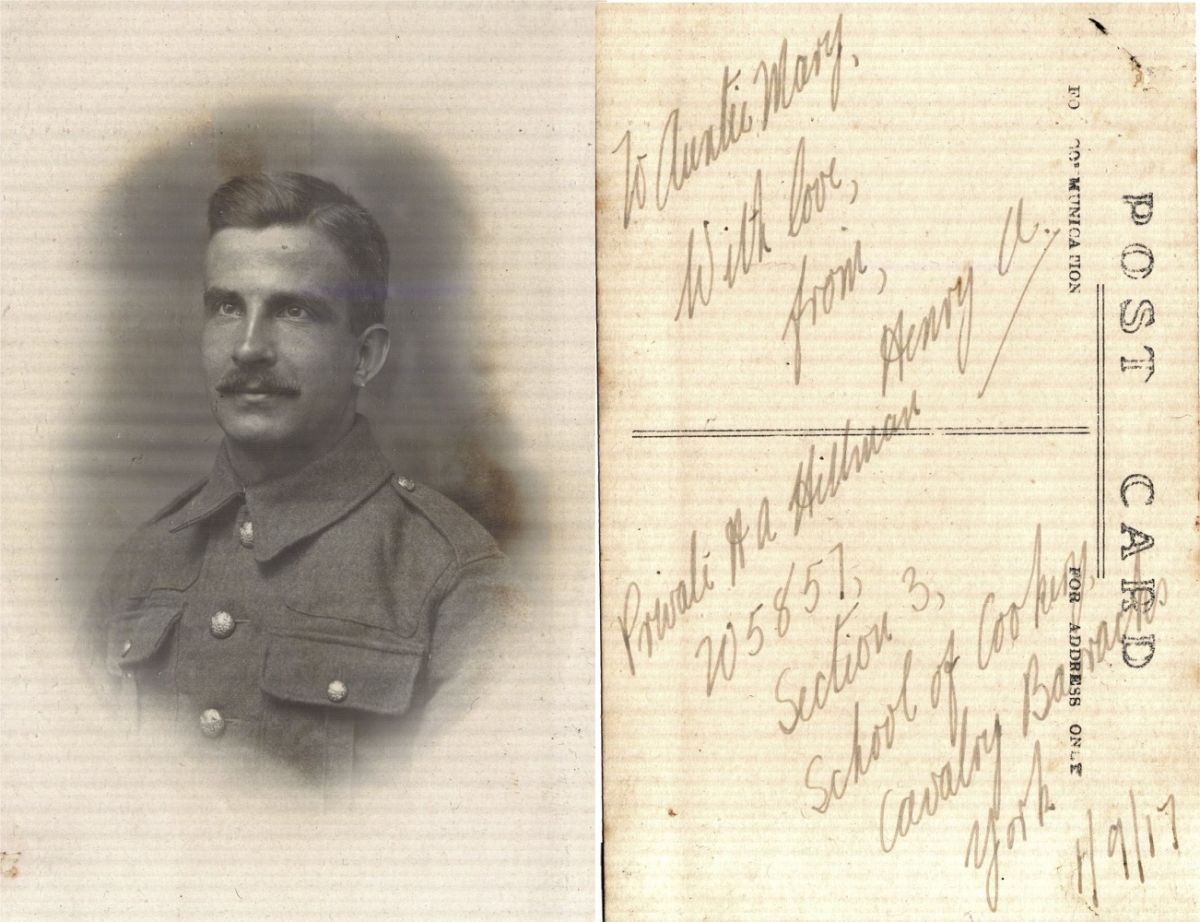 POST CARD
FO COMMUNICATION
FOR ADDRESS ONLY
To Auntie Mary,
With love,
from,
Henry A.
Private H A Hillman
205857,
Section 3,
School of Cookery,
Cavalry Barracks
York
1/9/17